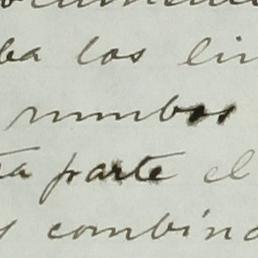 ba los lin
rumbos
ta parte el
y combina